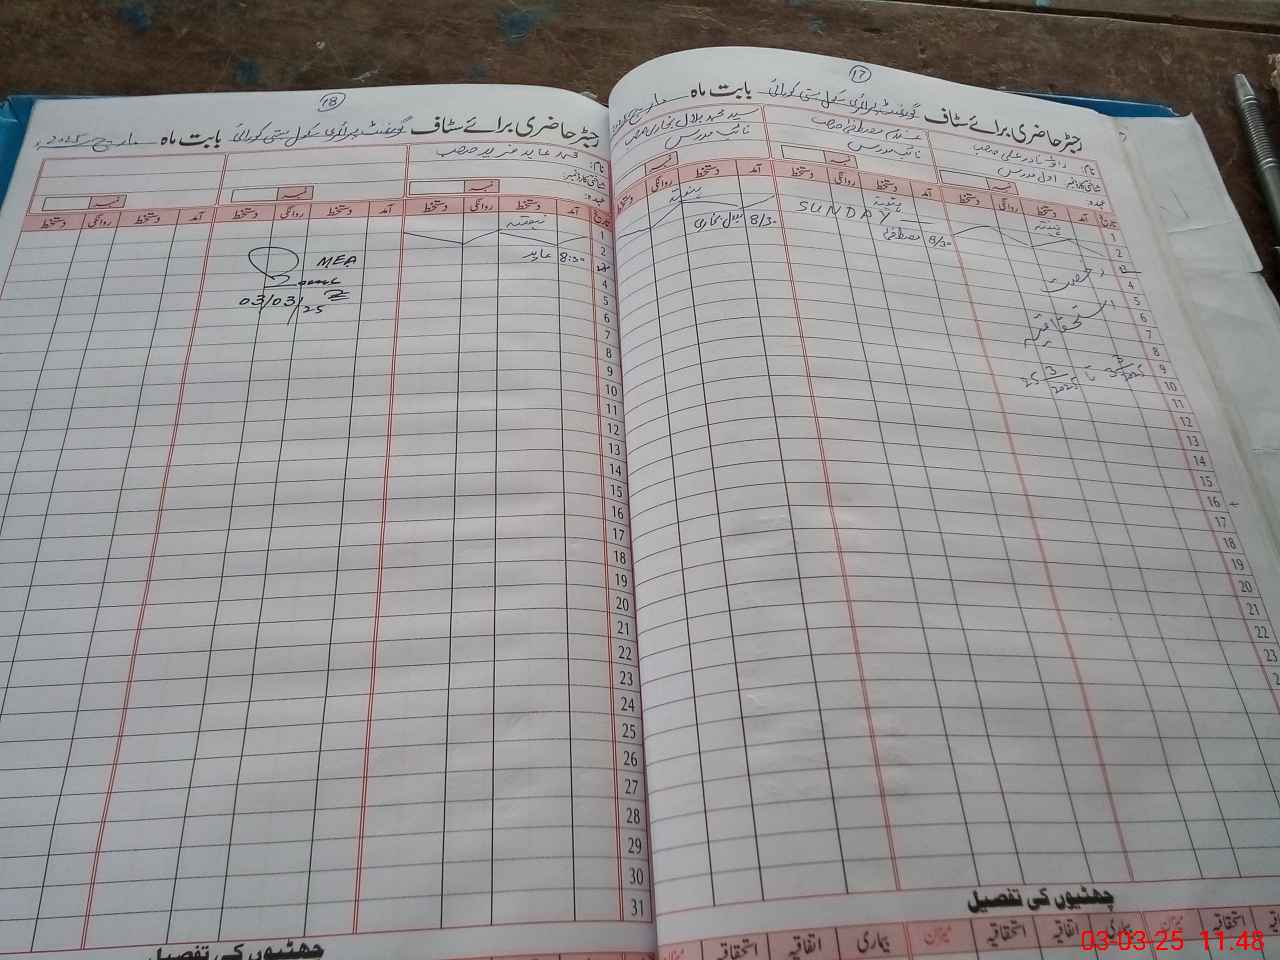 17
رجسٹر حاضری برائے سٹاف گورنمنٹ پرائمری سکول بستی کورائی بابت ماہ مارچ
نام:
شناختی کارڈ نمبر:
عہدہ:
اول مدرس
غلام مصطفیٰ صاحب
نائب مدرس
سید محمد بلال بخاری صاحب
نائب مدرس
تاریخ آمد دستخط روانگی دستخط آمد دستخط روانگی دستخط آمد دستخط روانگی دستخط
1
2 SUNDAY
3 8/30 مصطفیٰ 8/30 بلال بخاری
4 رخصت
5
6 استحقاقیہ
7
8
9 3/3/2025 تا 25/3/2025
10
11
12
13
14
15
16
17
18
19
20
21
22
23
چھٹیوں کی تفصیل
استحقاقیہ میزان بیماری اتفاقیہ استحقاقیہ میزان بیماری اتفاقیہ استحقاقیہ میزان
18
رجسٹر حاضری برائے سٹاف گورنمنٹ پرائمری سکول بستی کورائی بابت ماہ مارچ 2025ء
نام: محمد عابد فرید صاحب
شناختی کارڈ نمبر:
عہدہ:
تاریخ آمد دستخط روانگی دستخط آمد دستخط روانگی دستخط آمد دستخط روانگی دستخط
1
2
3 8:30 عابد
MEA
03/03/25
4
5
6
7
8
9
10
11
12
13
14
15
16
17
18
19
20
21
22
23
24
25
26
27
28
29
30
31
چھٹیوں کی تفصیل
03-03-25 11:48